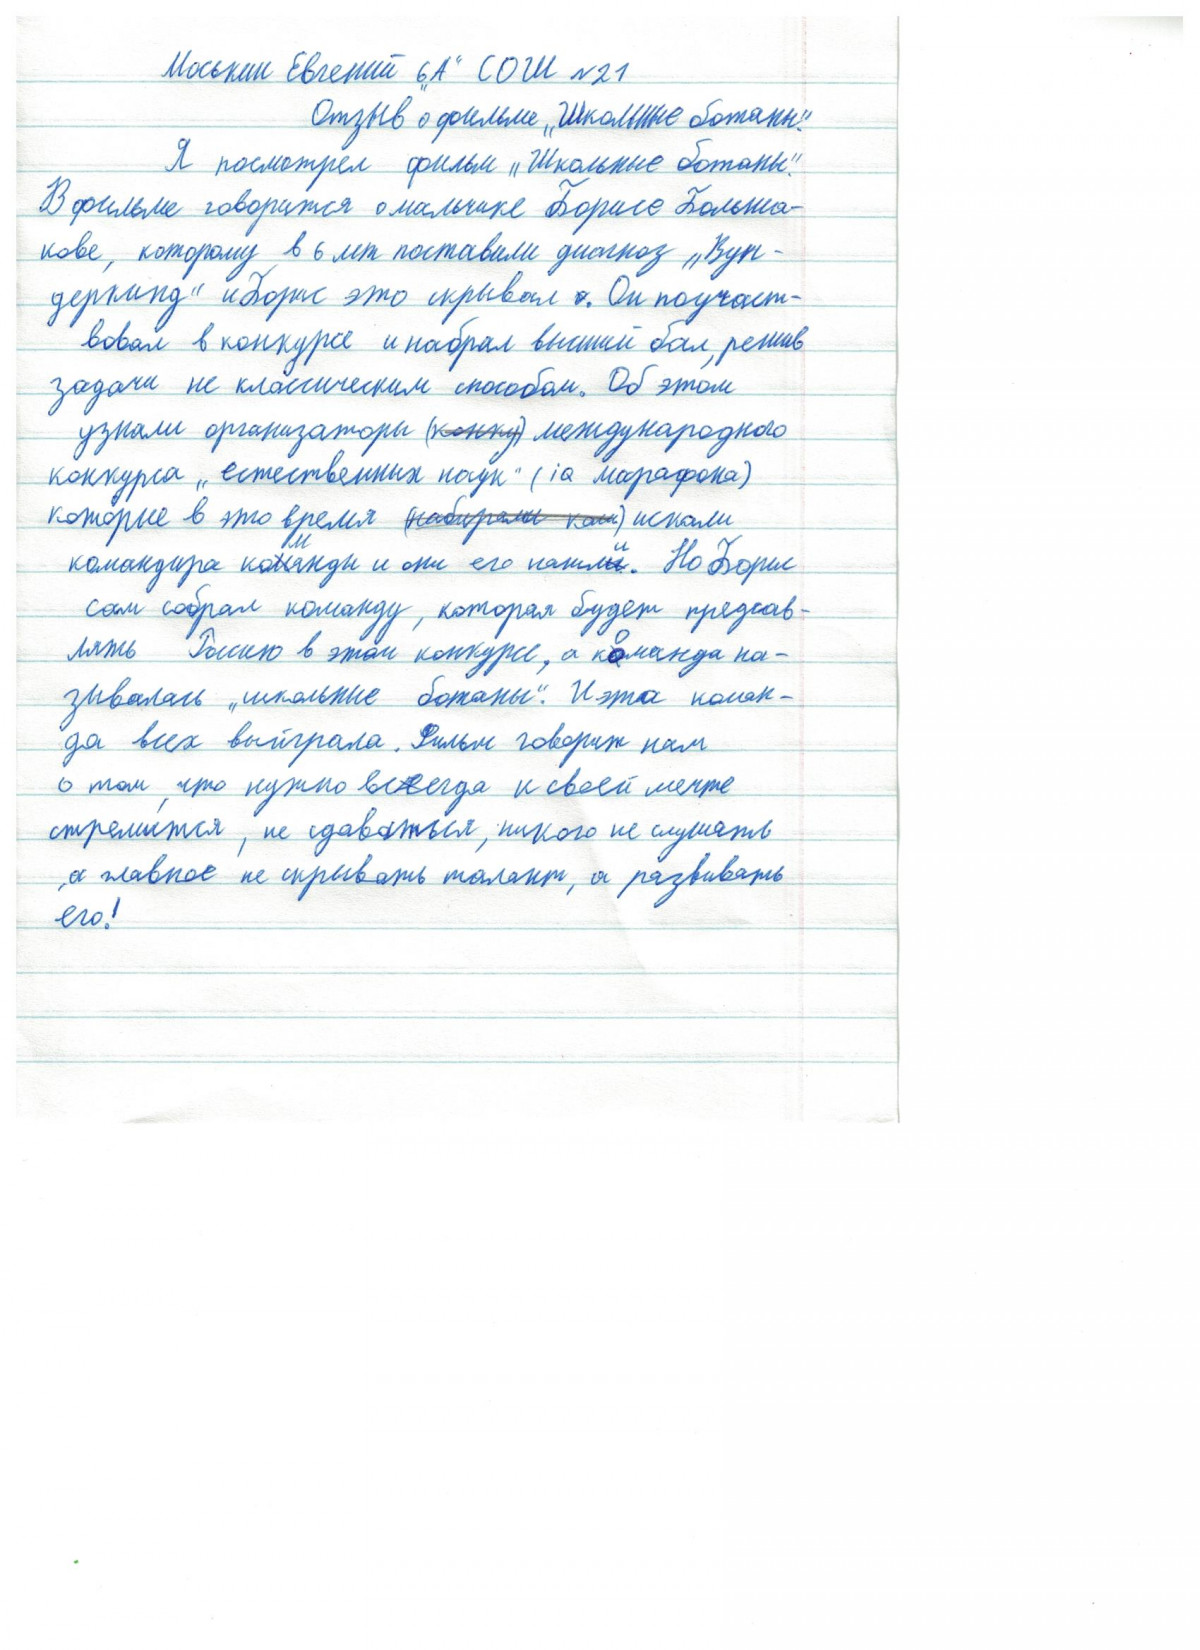 Моськин Евгений "6А" СОШ №21
Отзыв о фильме „Школьные ботаны".
Я посмотрел фильм „Школьные ботаны".
В фильме говорится о мальчике Борисе Больша-
кове, которому в 6 лет поставили диагноз „Вун-
деркинд" и Борис это скрывал. Он поучаст-
вовал в конкурсе и набрал высший бал, решив
задачи не классическим способом. Об этом
узнали организаторы (конку) международного
конкурса „естественных наук" (iq марафона)
которые в это время (набирали ком) искали
командира команды и они его нашли. Но Борис
сам собрал команду, которая будет предсав-
лять Россию в этом конкурсе, а команда на-
зывалась „школьные ботаны". И эта коман-
да всех выйграла. Фильм говорит нам
о том, что нужно всегда к своей мечте
стремится, не сдаваться, никого не слушать
, а главное не скрывать талант, а развивать
его!